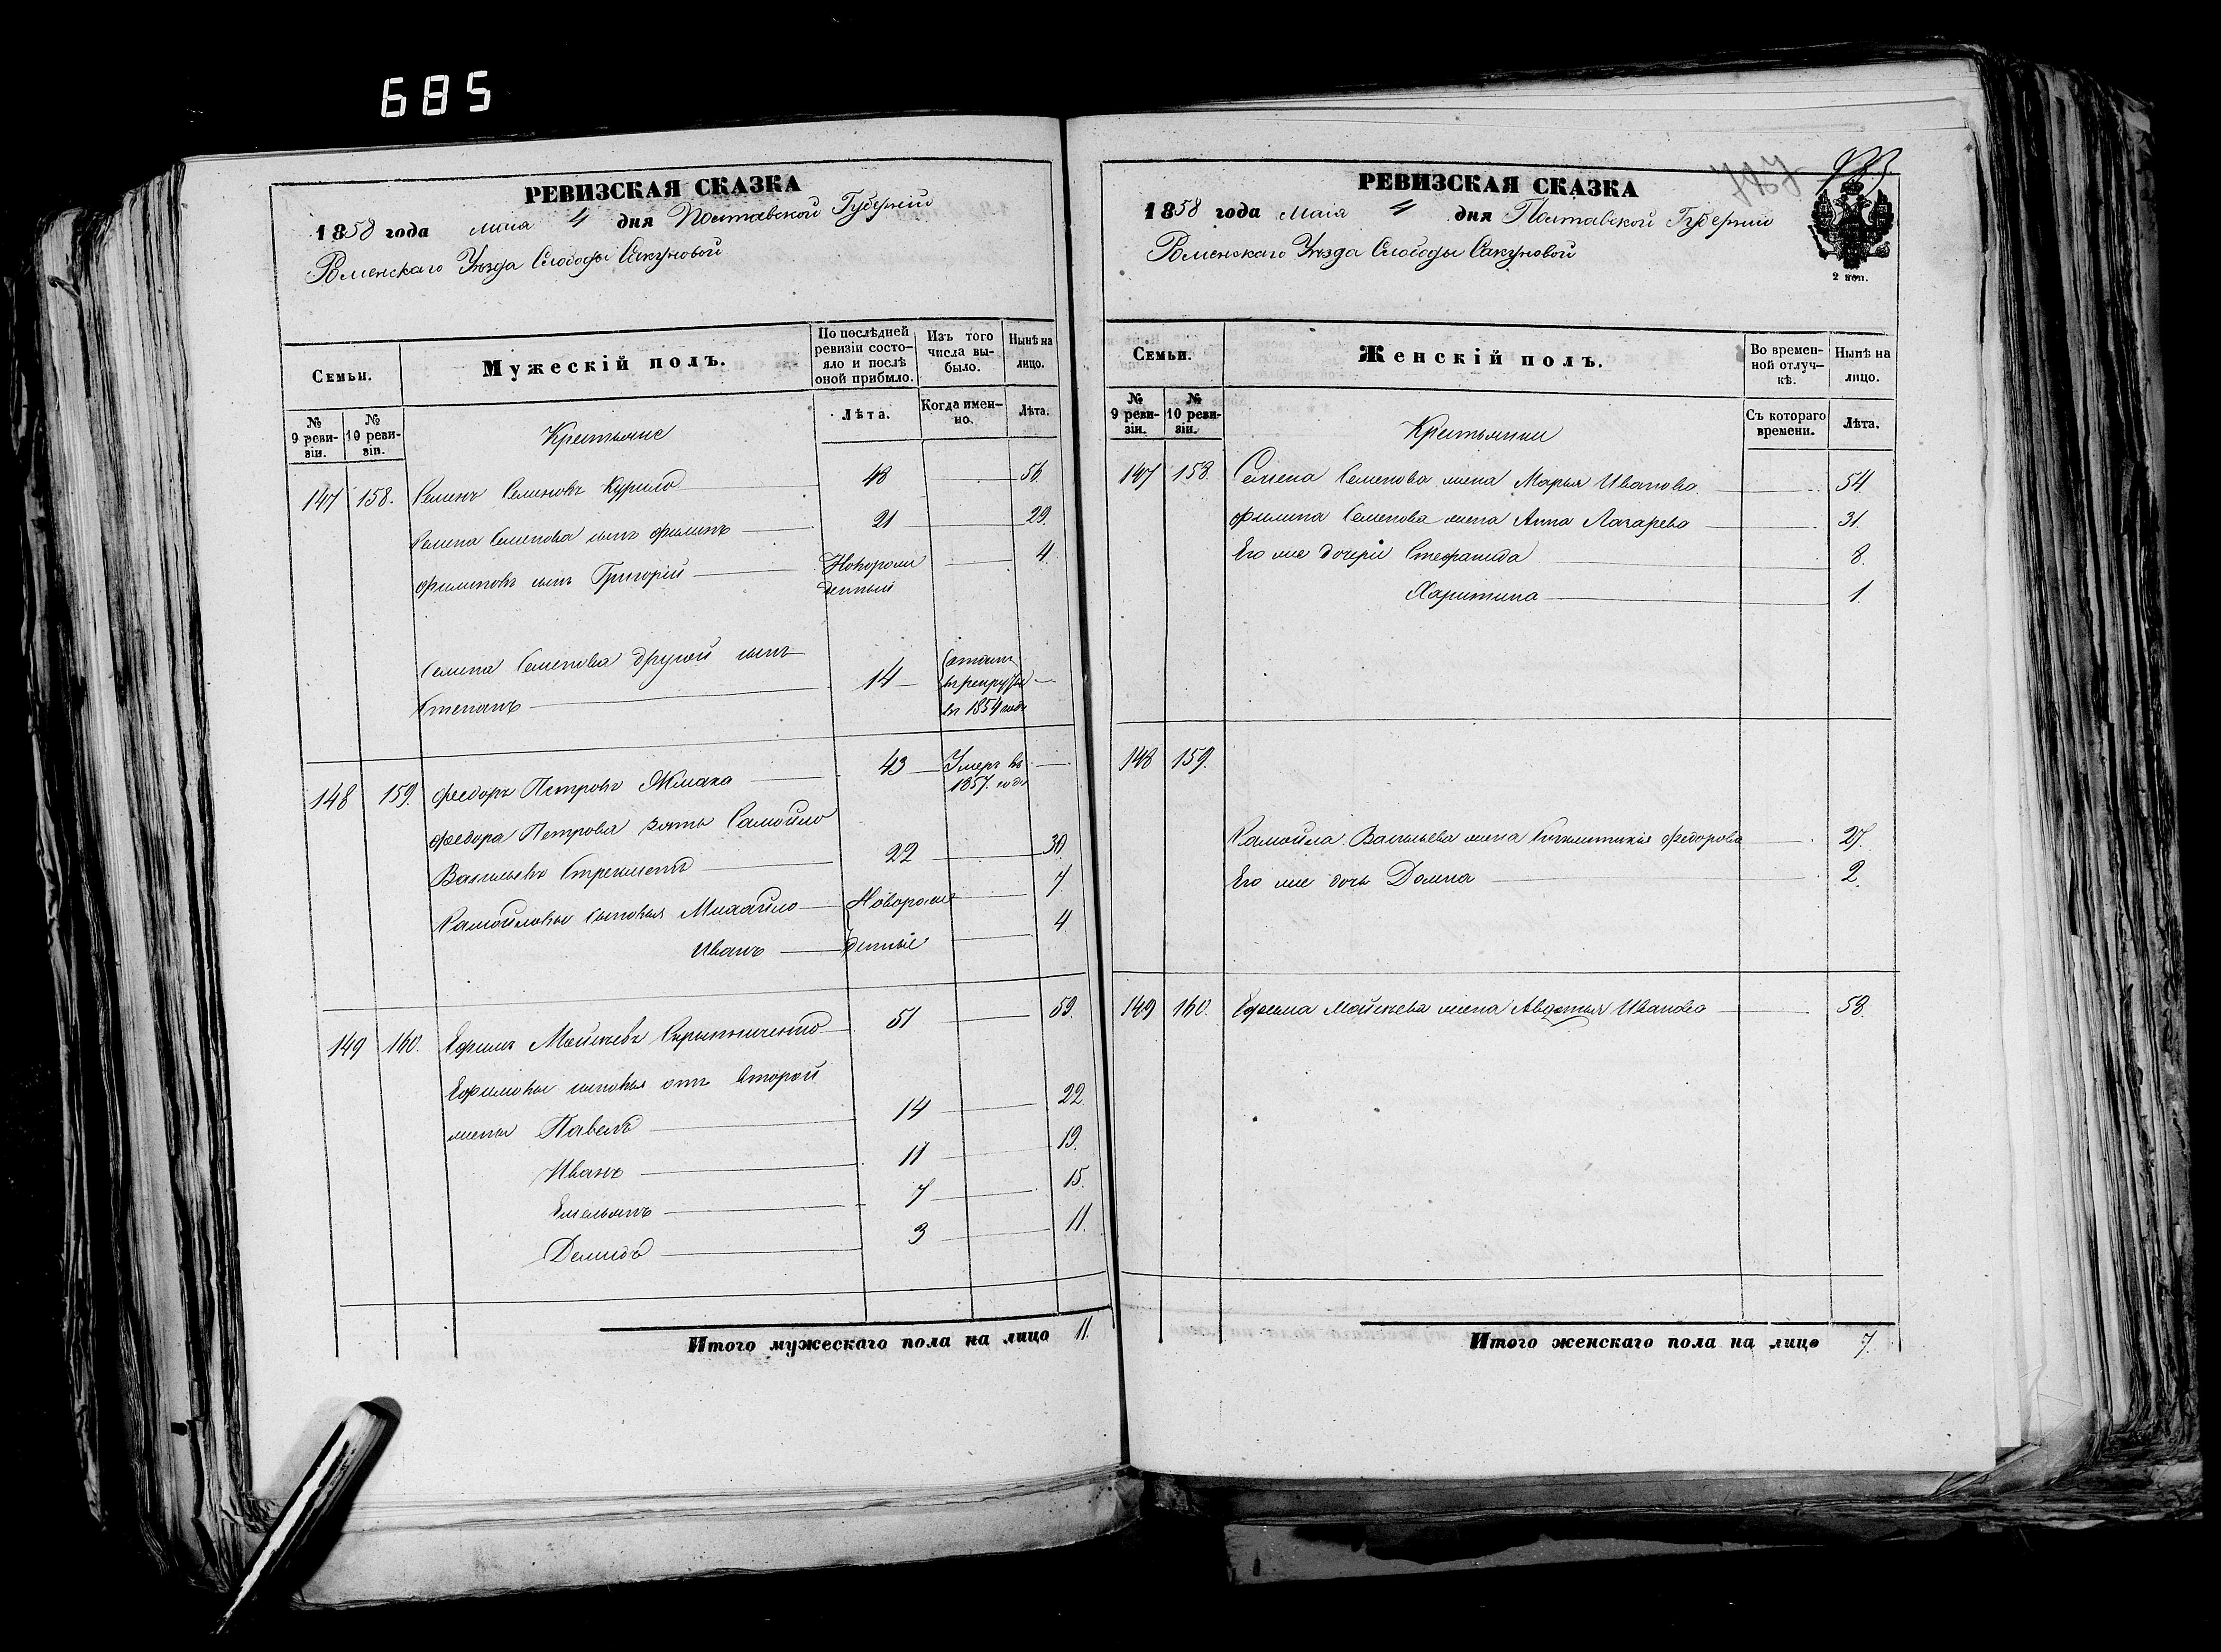 685
РЕВИЗСКАЯ СКАЗКА
1858 года маія 4 дня Полтавской Губерніи
Роменскаго Уѣзда Слободы Сакуновой
Семьи.
Мужескій полъ.
По послѣдней ревизіи состояло и послѣ оной прибыло.
Изъ того числа выбыло.
Нынѣ на лицо.
№ 9 ревизіи.
№ 10 ревизіи.
Крестьяне
Лѣта.
Когда именно.
Лѣта.
147 158. Семенъ Семеновъ Курило 48 56.
Семена Семенова сынъ Филипъ 21 29.
Филиповъ сынъ Григорій Новорож 4.
денный
Семена Семенова другой сынъ
Степанъ 14 въ рекруты
въ 1854 году
148 159. Федоръ Петровъ Жмака 43 Умеръ въ
1857. году
Федора Петрова зять Самойло
Васильевъ 22 30.
Самойловы сыновья Михайло Новорож 7
Иванъ денные 4
149 160. Ефимъ Моисеевъ Скрыпниченко 51 59.
Ефимовы сыновья отъ второй
жены Павелъ 14 22.
Иванъ 11 19.
Емельянъ 7 15.
Демидъ 3 11.
Итого мужескаго пола на лицо 11.
РЕВИЗСКАЯ СКАЗКА
1858 года маія 4 дня Полтавской Губерніи
Роменскаго Уѣзда Слободы Сакуновой
2 коп.
Семьи.
Женскій полъ.
Во временной отлучкѣ.
Нынѣ на лицо.
№ 9 ревизіи.
№ 10 ревизіи.
Крестьянки
Съ котораго времени.
Лѣта.
147 158. Семена Семенова жена Марья Иванова 54.
Филипа Семенова жена Анна Лазарева 31.
Его же дочери Стефанида 8.
Харитина 1.
148 159.
Самойла Васильева жена Федорова 27.
Его же дочь Домна 2.
149 160. Ефима Моисеева жена Авдотья Иванова 58.
Итого женскаго пола на лицо 7.